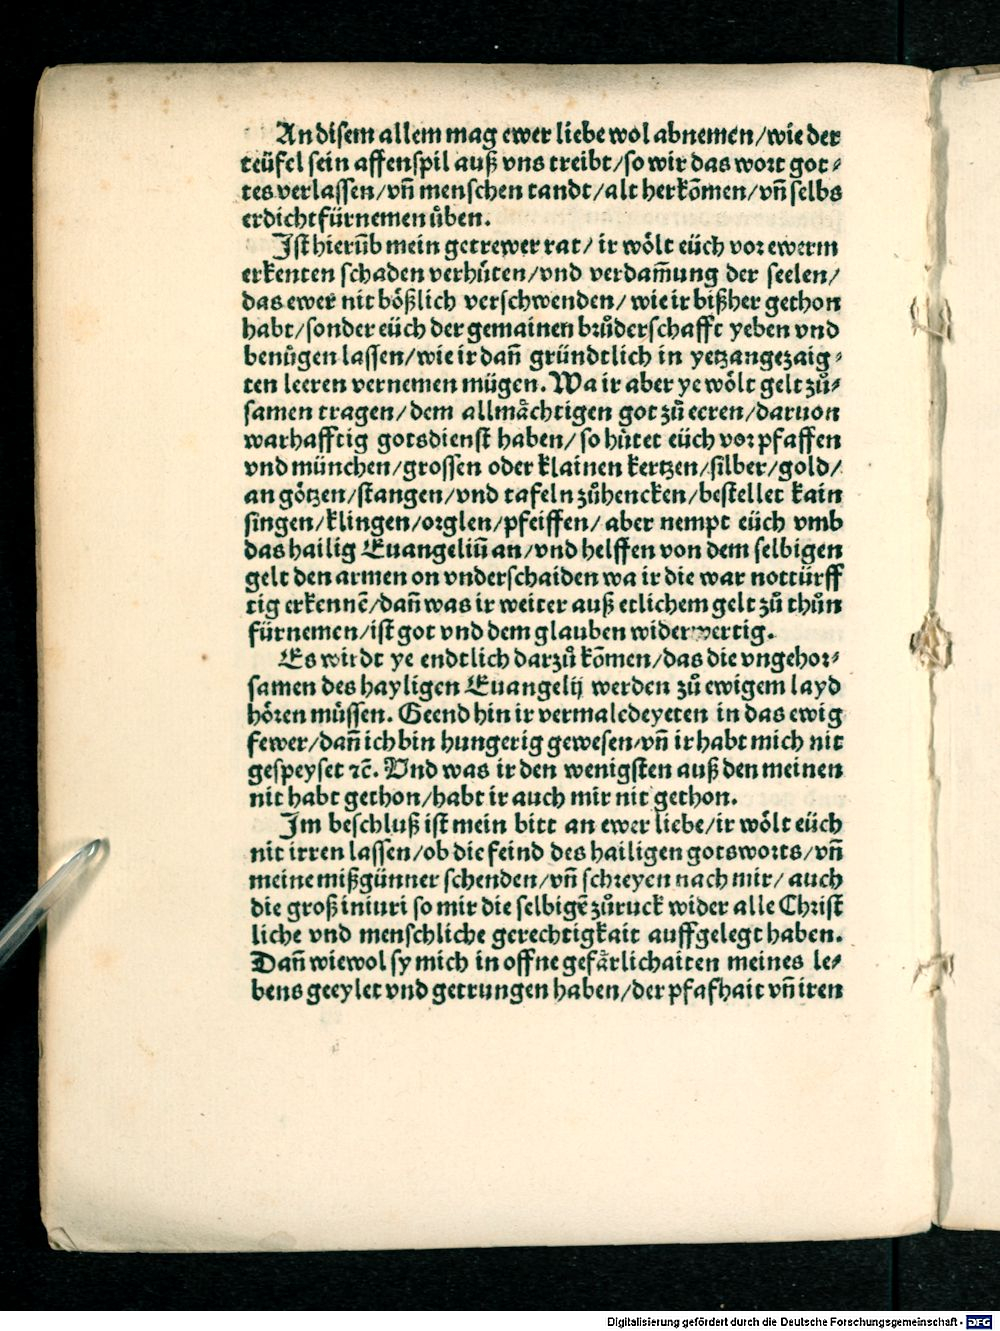 An disem allem mag ewer liebe wol abnemen/wie der
teüfel sein affenspil auß vns treibt/so wir das wort got⸗
tes verlassen/vñ menschen tandt/alt herkõmen/vñ selbs
erdicht fürnemen uͤben.
Ist hierũb mein getrewer rat/ ir woͤlt eüch vor ewerm
erkenten schaden verhuͤten/vnd verdam̃ung der seelen/
das ewer nit boͤßlich verschwenden/ wie ir bißher gethon
habt/sonder eüch der gemainen bruͦderschafft yeben vnd
benuͤgen lassen/wie ir dañ gründtlich in yetzangezaig⸗
ten leeren vernemen mügen. Wa ir aber ye woͤlt gelt zuͦ⸗
samen tragen/dem allmaͤchtigen got zuͦ eeren/daruon
warhafftig gotsdienst haben/so huͤtet eüch vor pfaffen
vnd münchen/grossen oder klainen kertzen/silber/gold/
an goͤtzen/stangen/vnd tafeln zuͦhencken/bestellet kain
singen/klingen/orglen/pfeiffen/ aber nempt eüch vmb
das hailig Euangeliũ an/vnd helffen von dem selbigen
gelt den armen on vnderschaiden wa ir die war nottürff
tig erkennẽ/dañ was ir weiter auß etlichem gelt zuͦ thuͦn
fürnemen/ist got vnd dem glauben widerwertig.
Es wirdt ye endtlich darzuͦ kõmen/das die vngehor⸗
samen des hayligen Euangelij werden zuͦ ewigem layd
hoͤren muͤssen. Geend hin ir vermaledeyeten in das ewig
fewer/dañ ich bin hungerig gewesen/vñ ir habt mich nit
gespeyset ꝛc̃. Vnd was ir den wenigsten auß den meinen
nit habt gethon/habt ir auch mir nit gethon.
Im beschluß ist mein bitt an ewer liebe/ir woͤlt eüch
nit irren lassen/ob die feind des hailigen gotsworts/vñ
meine mißgünner schenden/vñ schreyen nach mir/ auch
die groß iniuri so mir die selbigẽ zuͦruck wider alle Christ
liche vnd menschliche gerechtigkait auffgelegt haben.
Dañ wiewol sy mich in offne gefaͤrlichaiten meines le⸗
bens geeylet vnd getrungen haben/der pfafhait vñ iren
Digitalisierung gefördert durch die Deutsche Forschungsgemeinschaft - DFG